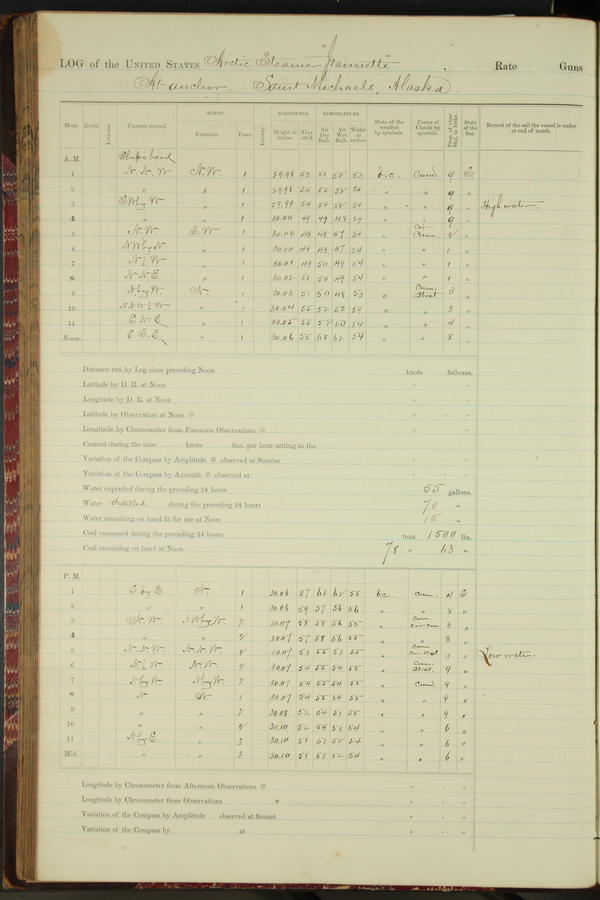 LOG of the UNITED STATES Arctic Steamer "Jeannette". Rate Guns
At anchor. Saint Michaels, Alaska.
WINDS. BAROMETER. TEMPERATURE.
Hour. Knots. Fathoms. Courses steered. Direction. Force. Leeway. Height in inches. Ther. att'd. Air Dry Bulb. Air Wet Bulb. Water at surface. State of the weather by symbols. Forms of Clouds by symbols. Prop. of clear Sky, in 10ths. State of the Sea. Record of the sail the vessel is under at end of watch.
A. M. Ship's head
1 N. N. W N. W. 1 29.98 53 51 52 53 b.c. Cum. 9 S.
2 " " 1 29.98 54 50 52 54 " " 9 "
3 " 1 29.99 54 52 52 54 " " 9 " High water.
4 " " 1 30.00 49 49 48 54 " " 9 "
5 N. W. S. W. 1 30.00 48 48 47 54 "
6 N W by N " 1 30.00 48 48 47 54 " " 1 "
7 N ½ W. " 1 30.01 49 50 49 54 " " 1 "
8 N N E. " 1 30.02 51 50 49 54 " " 1 "
9 N by W. N. " 1 30.03 51 50 48 53 " Cum. Strat. 3 "
10 " 1 30.04 55 52 50 54 " " 3 "
11 E. N. E. " 1 30.05 55 52 50 54 " " 4 "
Noon. E. S. E. " 1 30.06 55 63 62 54 " " 8 "
Distance run by Log since preceding Noon knots fathoms.
Latitude by D. R. at Noon ° ' "
Longitude by D. R. at Noon ° ' "
Latitude by Observation at Noon ° ' "
Longitude by Chronometer from Forenoon Observations ° ' "
Current during the time knots fms. per hour setting to the
Variation of the Compass by Amplitude observed at Sunrise ° ' "
Variation of the Compass by Azimuth observed at ° ' "
Water expended during the preceding 24 hours 55 gallons.
Water distilled during the preceding 24 hours 70 "
Water remaining on hand fit for use at Noon 15 "
Coal consumed during the preceding 24 hours tons. 1500 lbs.
Coal remaining on hand at Noon 78 " 63 "
P. M.
1 S by E N. 1 30.06 57 63 62 55 b.c. Cum. 4 S
2 " " 1 30.06 59 57 56 56 " " 8 "
3 N. W. N W by W. 2 30.07 58 58 56 55 " Cum. cir-cum 8 "
4 " " 2 30.07 57 58 56 55 " " 8 "
5 N. N. W. N. N. W. 2 30.07 53 55 53 55 " Cum. 9 " Low water.
6 N ½ W. N. W. 2 30.07 54 55 54 55 " Cum. Strat. 9 "
7 N by W. N by W. 2 30.07 54 55 54 55 " Cum. 9 "
8 N N 1 30.07 54 55 54 55 " " 9 "
9 " " 2 30.08 52 54 53 55 " " 9 "
10 " " 2 30.10 52 54 53 54 " " 6 "
11 N by E. " 3 30.10 51 53 52 54 " " 6 "
Mid. " " 3 30.10 51 53 52 54 " " 6 "
Longitude by Chronometer from Afternoon Observations ° ' "
Longitude by Chronometer from Observations ° ' "
Variation of the Compass by Amplitude observed at Sunset ° ' "
Variation of the Compass by at ° ' "